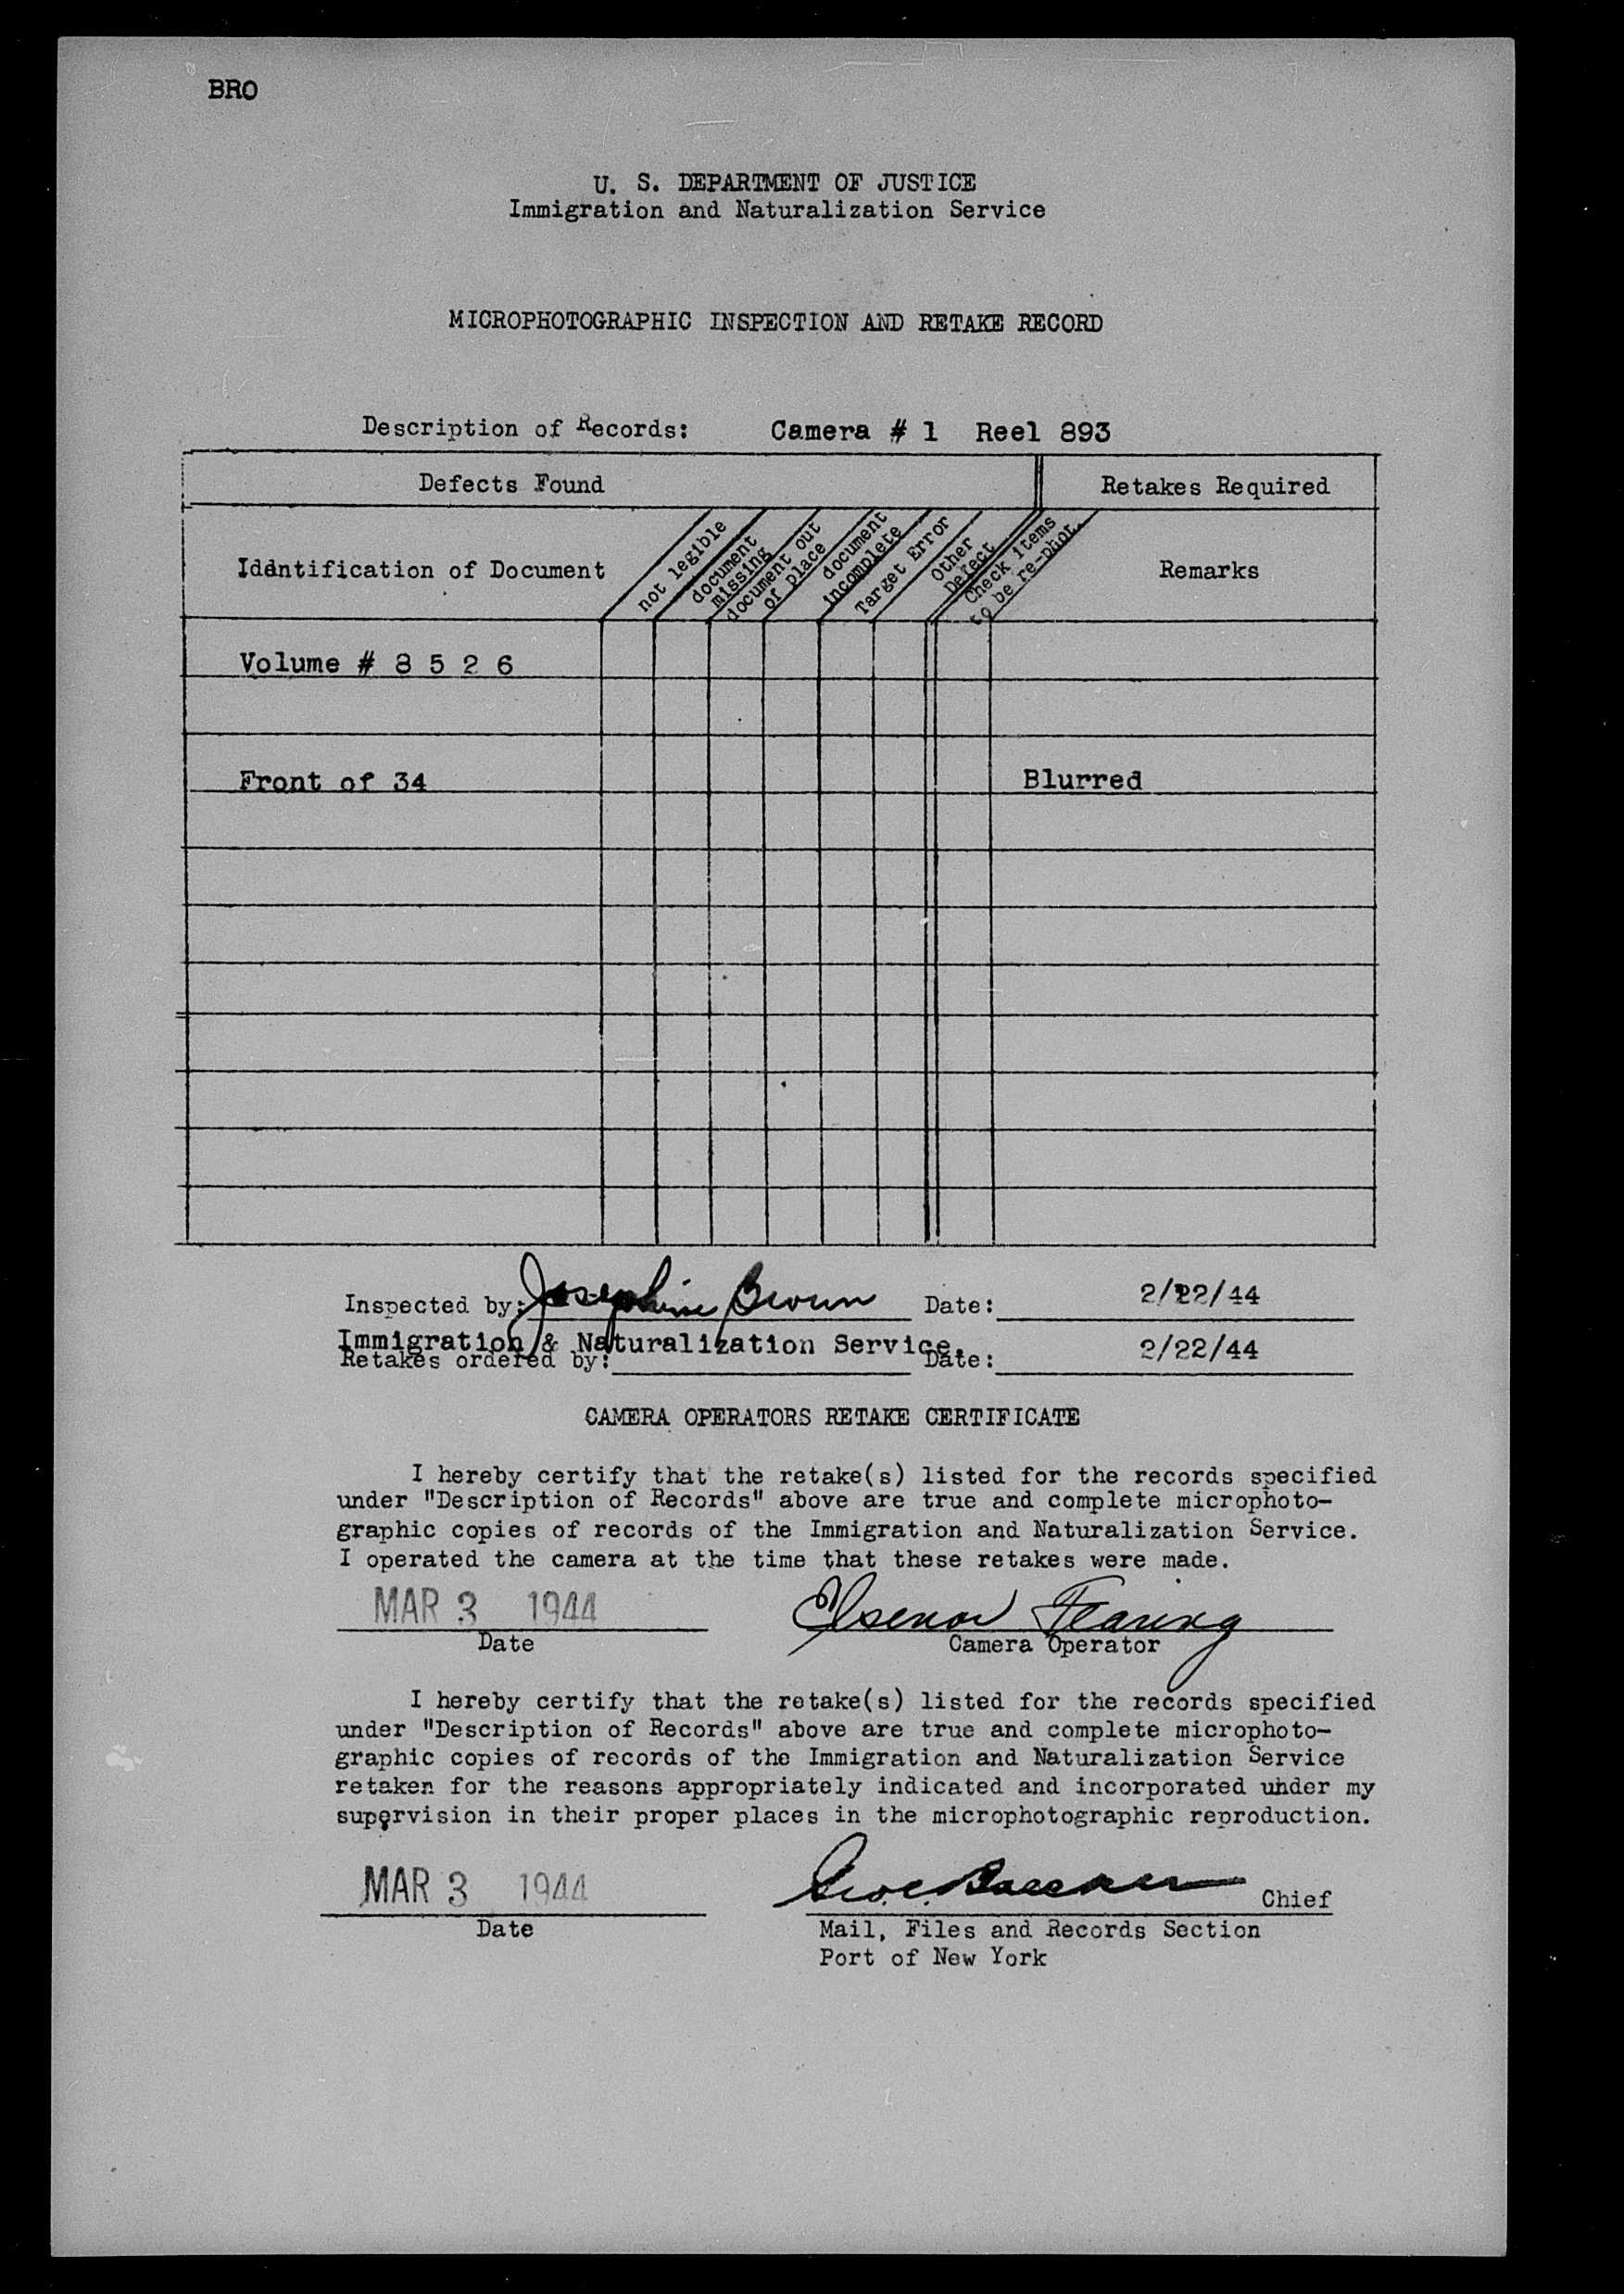 BRO
U. S. DEPARTMENT OF JUSTICE
Immigration and Naturalization Service
MICROPHOTOGRAPHIC INSPECTION AND RETAKE RECORD
Description of Records: Camera # 1 Reel 893
Defects Found Retakes Required
Idantification of Document
not legible
document missing
document out of place
document incomplete
Target Error
Other Defect
Check items to be re-phot.
Remarks
Volume # 8 5 2 6
Front of 34 Blurred
Inspected by: Josephine Brown Date: 2/22/44
Immigration & Naturalization Service.
Retakes ordered by: Date: 2/22/44
CAMERA OPERATORS RETAKE CERTIFICATE
I hereby certify that the retake(s) listed for the records specified
under "Description of Records" above are true and complete microphoto-
graphic copies of records of the Immigration and Naturalization Service.
I operated the camera at the time that these retakes were made.
MAR 3 1944 Fearing
Date Camera Operator
I hereby certify that the retake(s) listed for the records specified
under "Description of Records" above are true and complete microphoto-
graphic copies of records of the Immigration and Naturalization Service
retaken for the reasons appropriately indicated and incorporated under my
supervision in their proper places in the microphotographic reproduction.
MAR 3 1944 Chief
Date Mail, Files and Records Section
Port of New York